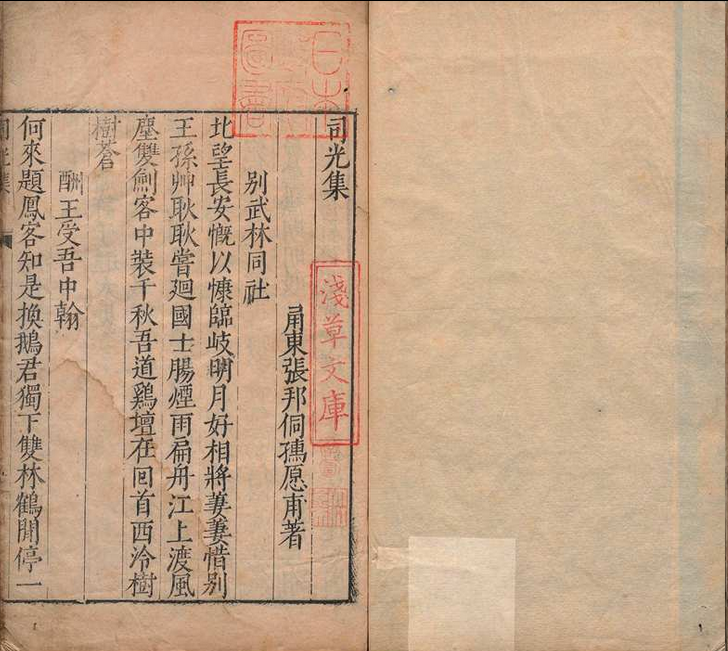 司光集
甬東張邦侗孺愿甫著
别武林同社
北望長安慨以慷臨岐明月好相將萋萋惜别
王孫艸耿耿嘗廻國士腸煙雨扁舟江上渡風
塵雙劍客中裝千秋吾道鷄壇在回首西泠樹
樹蒼
酬王受吾中翰
何來題鳳客知是換鵝君獨下雙林鶴閒停一
淺草文庫